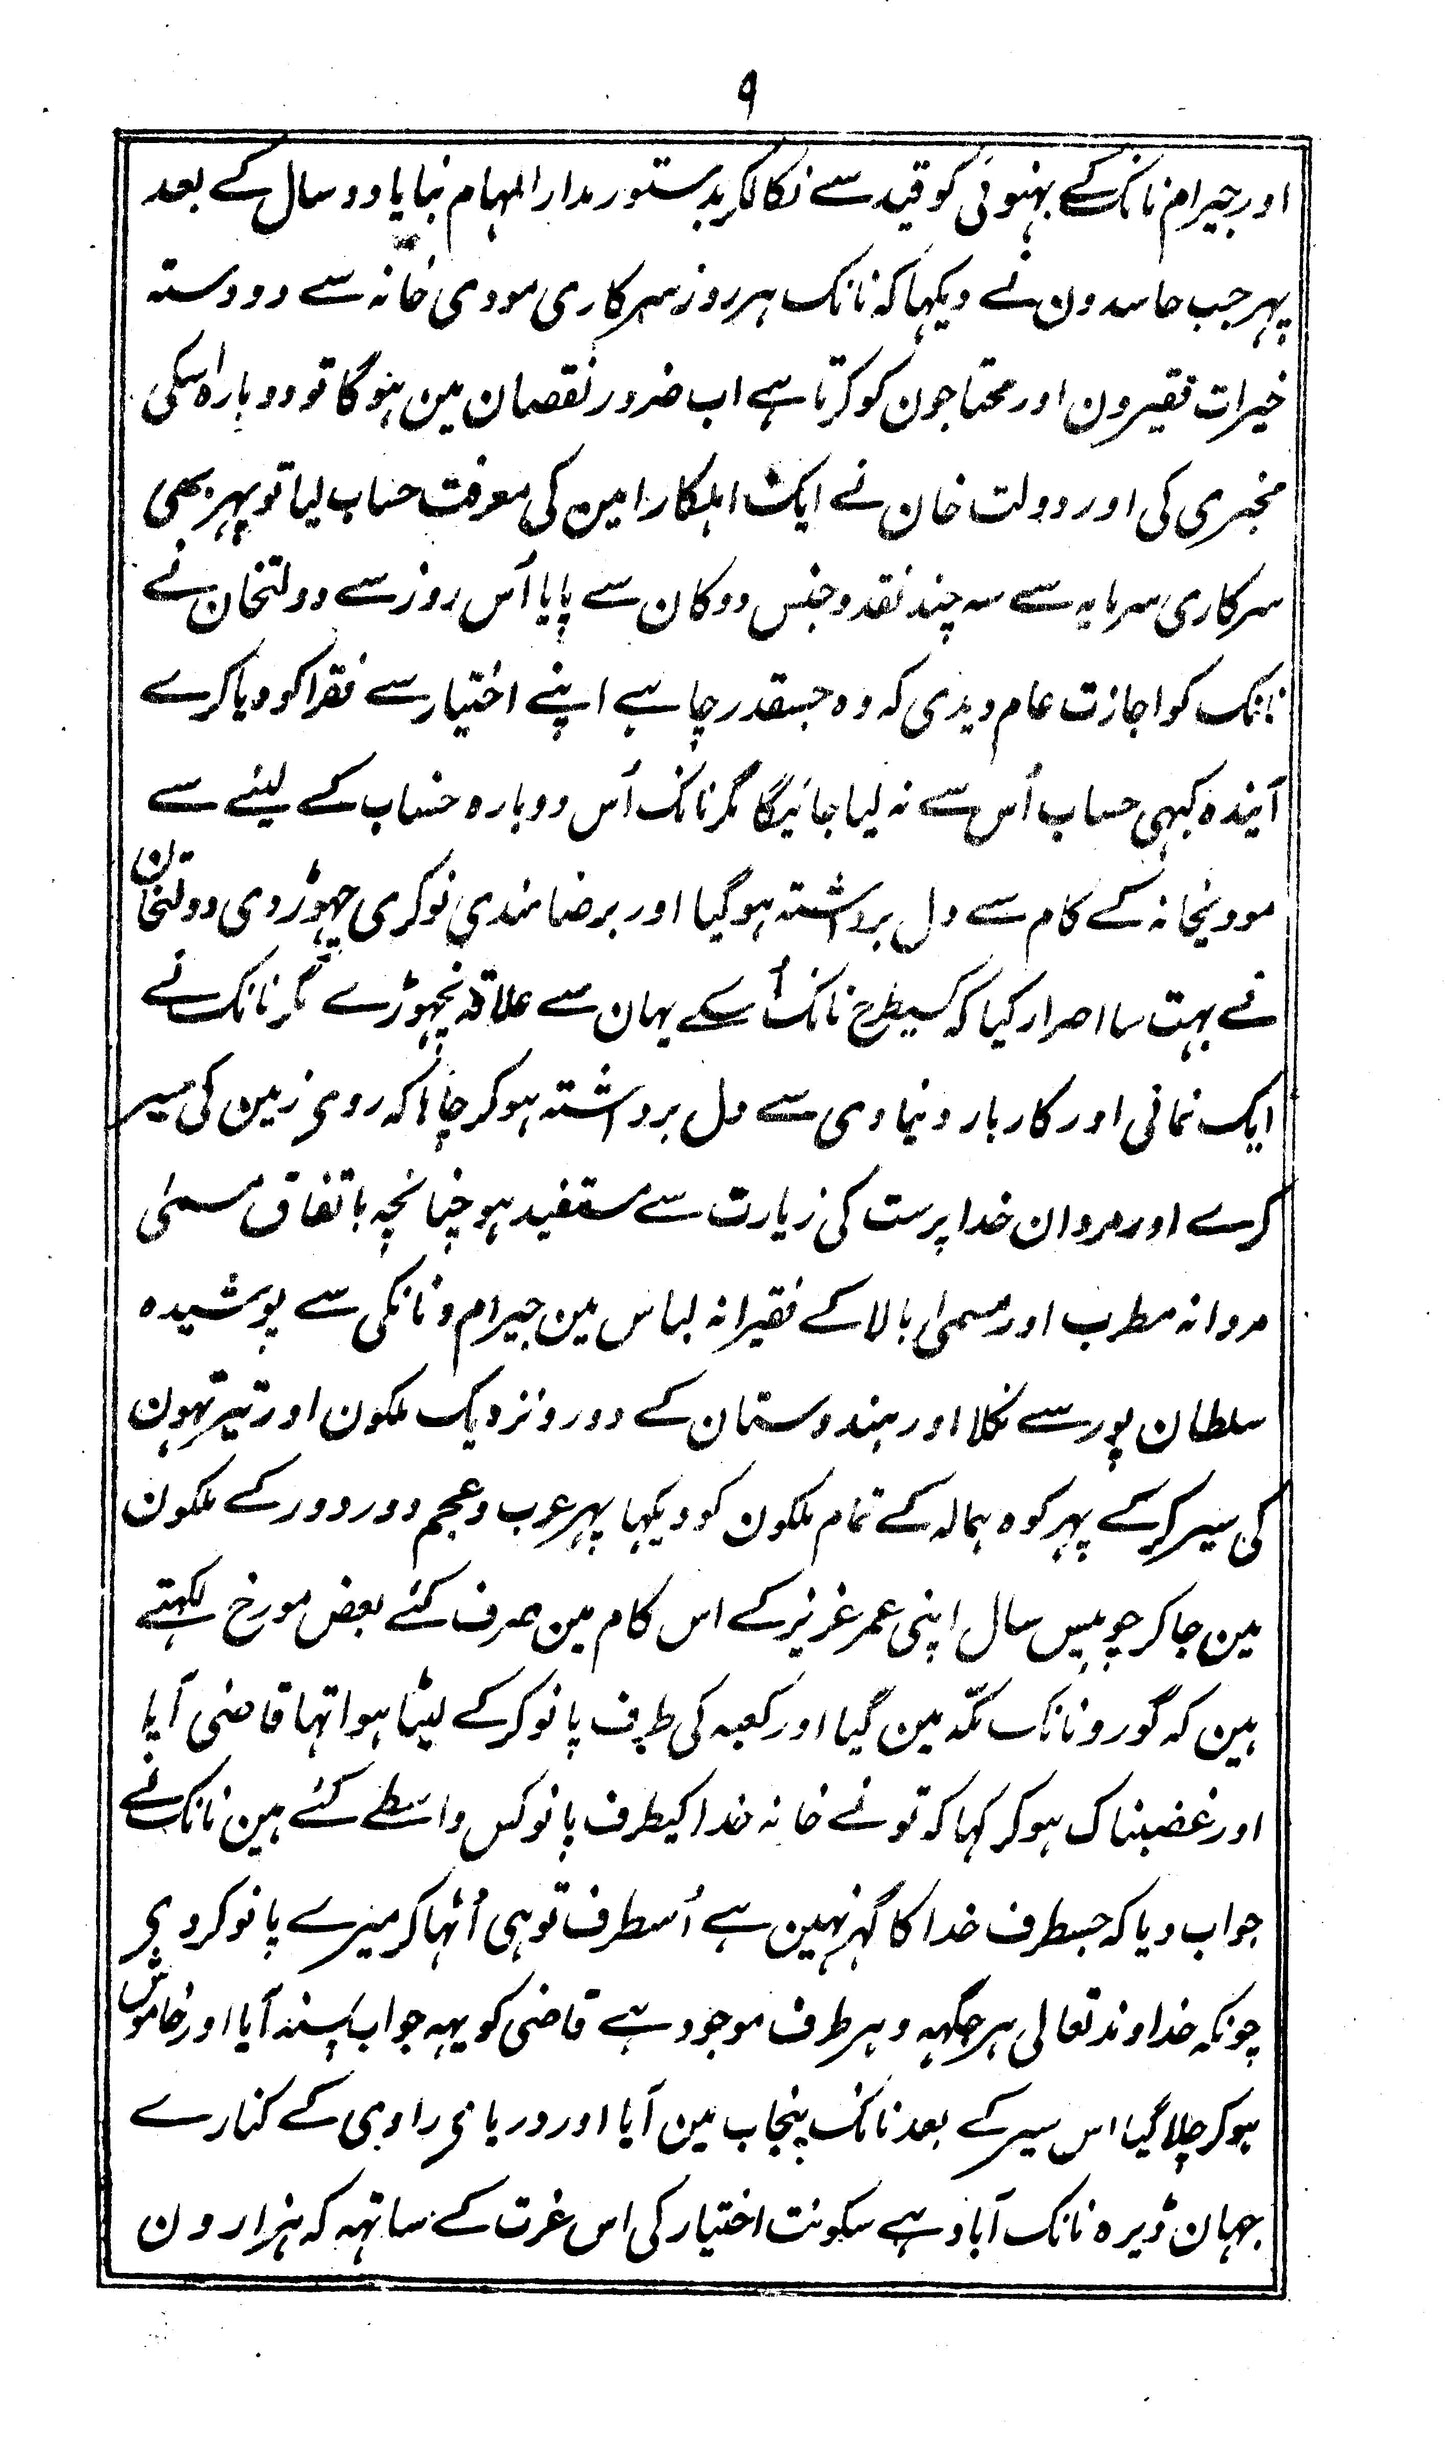 ۹
اور جیرام نانک کے بہنوئی کو قید سے نکالکر بدستور مدارالمہام بنایا دو سال کے بعد
پہر جب حاسدون نے دیکہا کہ نانک ہر روز سرکاری مودی خانہ سے دو دستہ
خیرات فقیرون اور محتاجون کو کرتا ہے اب ضرور نقصان مین ہنوگا تو دوبارہ اسکی
مخبری کی اور دولت خان نے ایک اہلکار امین کی معرفت حساب لیا تو پہر بھی
سرکاری سرمایہ سے سہ چند نقد و جنس دوکان سے پایا اُس روز سے دولتخان نے
نانک کو اجازت عام دیدی کہ وہ جسقدر چاہے اپنے اختیار سے فقرا کو دیا کرے
آیندہ کبہی حساب اُس سے نہ لیا جائیگا مگر نانک اُس دوبارہ حساب کے لینے سے
مودیخانہ کے کام سے دل برداشتہ ہوگیا اور برضامندی نوکری چہوڑ دی دولتخان
نے بہت سا اصرار کیا کہ کسیطرح نانک اُسکے یہان سے علاقہ نچہوڑے مگر نانک نے
ایک نمانی اور کاربار دنیاوی سے دل برداشتہ ہوکر چاہا کہ روی زمین کی سیر
کرے اور مردان خدا پرست کی زیارت سے مستفید ہو چنانچہ باتفاق مسمیٰ
مردانہ مطرب اور مسمیٰ بالا کے فقیرانہ لباس مین جیرام و نانکی سے پوشیدہ
سلطان پور سے نکلا اور ہندوستان کے دور و نزدیک ملکون اور تیرتہون
کی سیر کرکے پہر کوہ ہمالہ کے تمام ملکون کو دیکہا پہر عرب و عجم دور دور کے ملکون
مین جاکر چوبیس سال اپنی عمر عزیز کے اس کام مین صرف کئے بعض مورخ لکہتے
ہین کہ گورو نانک مکّہ مین گیا اور کعبہ کی طرف پانو کرکے لیٹا ہوا تہا قاضی آیا
اور غضبناک ہوکر کہا کہ تونے خانہ خدا کیطرف پانو کس واسطے کئے ہین نانک نے
جواب دیا کہ جسطرف خدا کا گہر نہین ہے اُسطرف توہی اُٹہا کر میرے پانو کردی
چونکہ خداوند تعالی ہر جگہہ و ہر طرف موجود ہے قاضی کو یہہ جواب پسند آیا اور خاموش
ہوکر چلا گیا اس سیر کے بعد نانک پنجاب مین آیا اور دریای راوی کے کنارے
جہان ڈیرہ نانک آباد ہے سکونت اختیار کی اس عزت کے ساتہہ کہ ہزارون